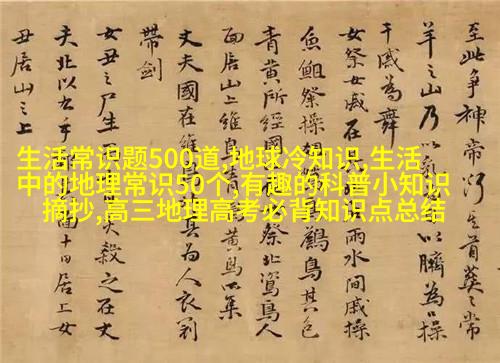 至此爭神帝其首葬之常
羊之山乃以乳以臍為口操
干戚為舞
女祭女戚在兩水間戚操
魚䱇祭操俎鳥其色
青黃所經國祭北鳥人
面居山上維鳥黃鳥所集
丈夫國在維鳥其為人衣冠
帶劍
女丑之尸生殺之在丈
夫北以右手十日居上女
丑居山之上
生活常识题500道,地球冷知识,生活
中的地理常识50个,有趣的科普小知识
摘抄,高三地理高考必背知识点总结